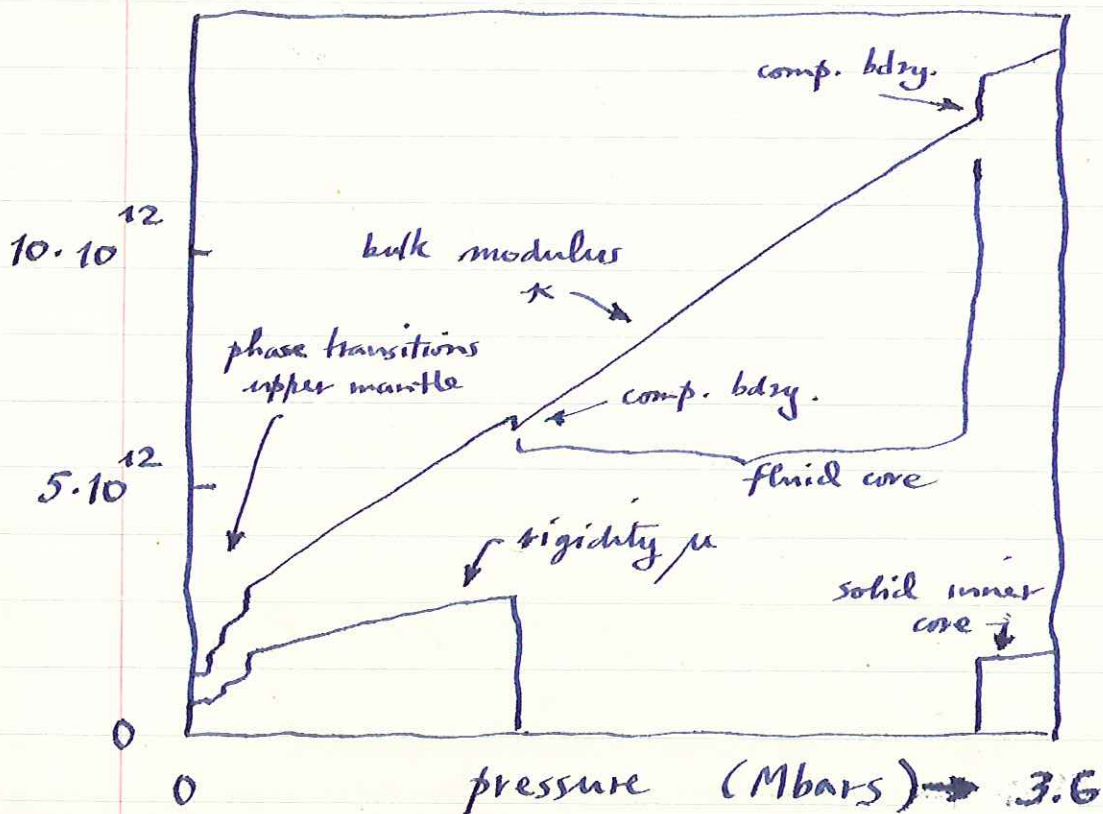 comp. bdry.
10·10¹²
bulk modulus
κ
phase transitions
upper mantle
comp. bdry.
5·10¹²
fluid core
rigidity μ
solid inner
core
0
0
pressure (Mbars) → 3.6